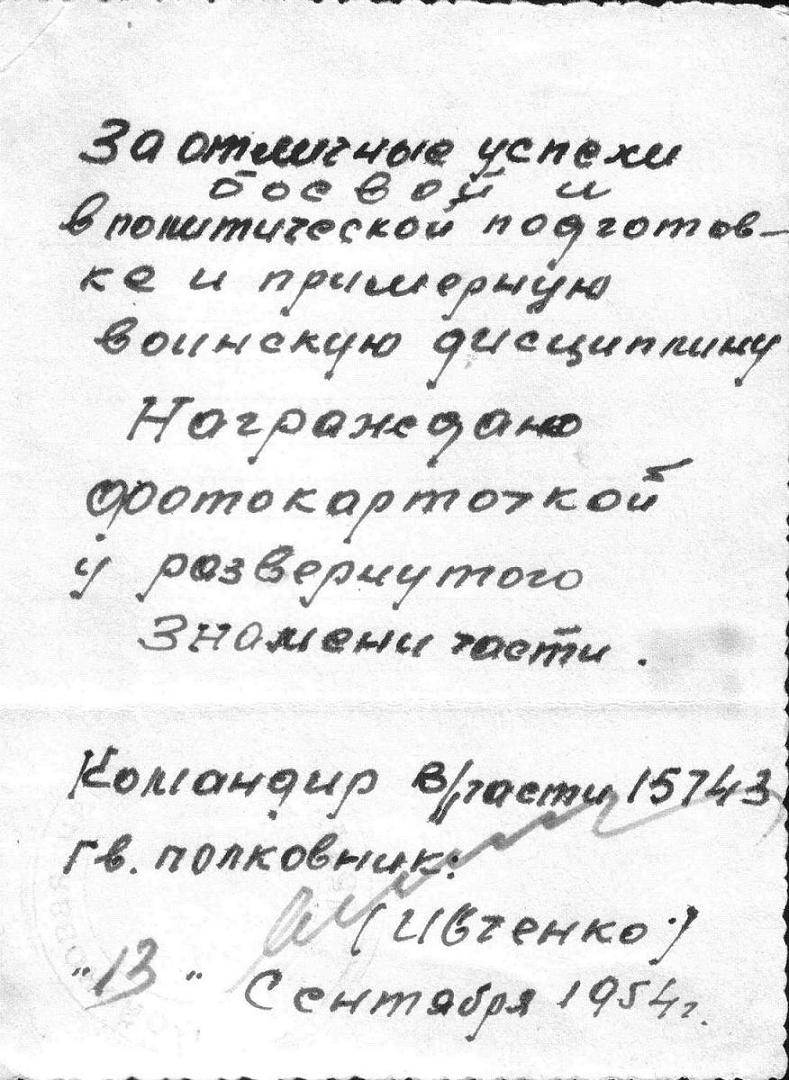 За отличные успехи
боевой и
в политической подготов-
ке и примерную
воинскую дисциплину
Награждаю
фотокарточкой
у развернутого
Знамени части.
Командир в/части 15743
Гв. полковник:
(Ивченко.)
"13" Сентября 1954г.